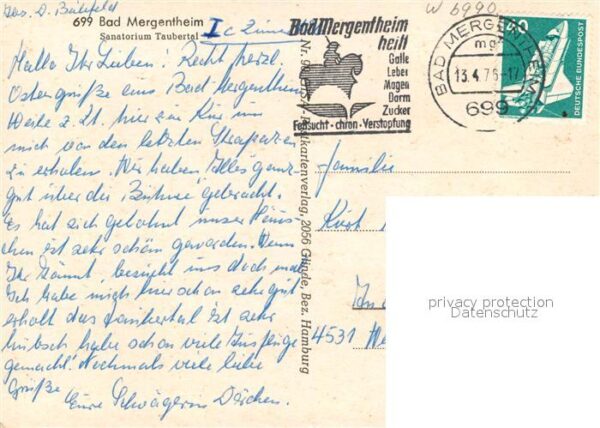 699 Bad Mergentheim
Sanatorium Taubertal
Hallo Ihr Lieben! Recht herzl.
Ostergrüße aus Bad-Mergentheim
z. Zt. hier zur Kur um
mich von den letzten Strapazen
zu erholen. Wir haben Alles ganz
gut über die Bühne gebracht.
Es hat sich gelohnt unser Häus-
chen ist sehr schön geworden. Wenn
Ihr könnt, besucht uns doch mal
Ich habe mich hier schon sehr gut
erholt das Taubertal ist sehr
hübsch habe schon viele Ausflüge
gemacht. Nochmals viele liebe
Grüße
Eure Schwägerin Dorchen.
Bad Mergentheim
heilt
Galle
Leber
Magen
Darm
Zucker
Fettsucht · chron · Verstopfung
W 6990
BAD MERGENTHEIM
mg
13.4.76-17
699
DEUTSCHE BUNDESPOST
postkartenverlag, 2056 Glinde, Bez. Hamburg
Familie
Kurt
4531
privacy protection
Datenschutz